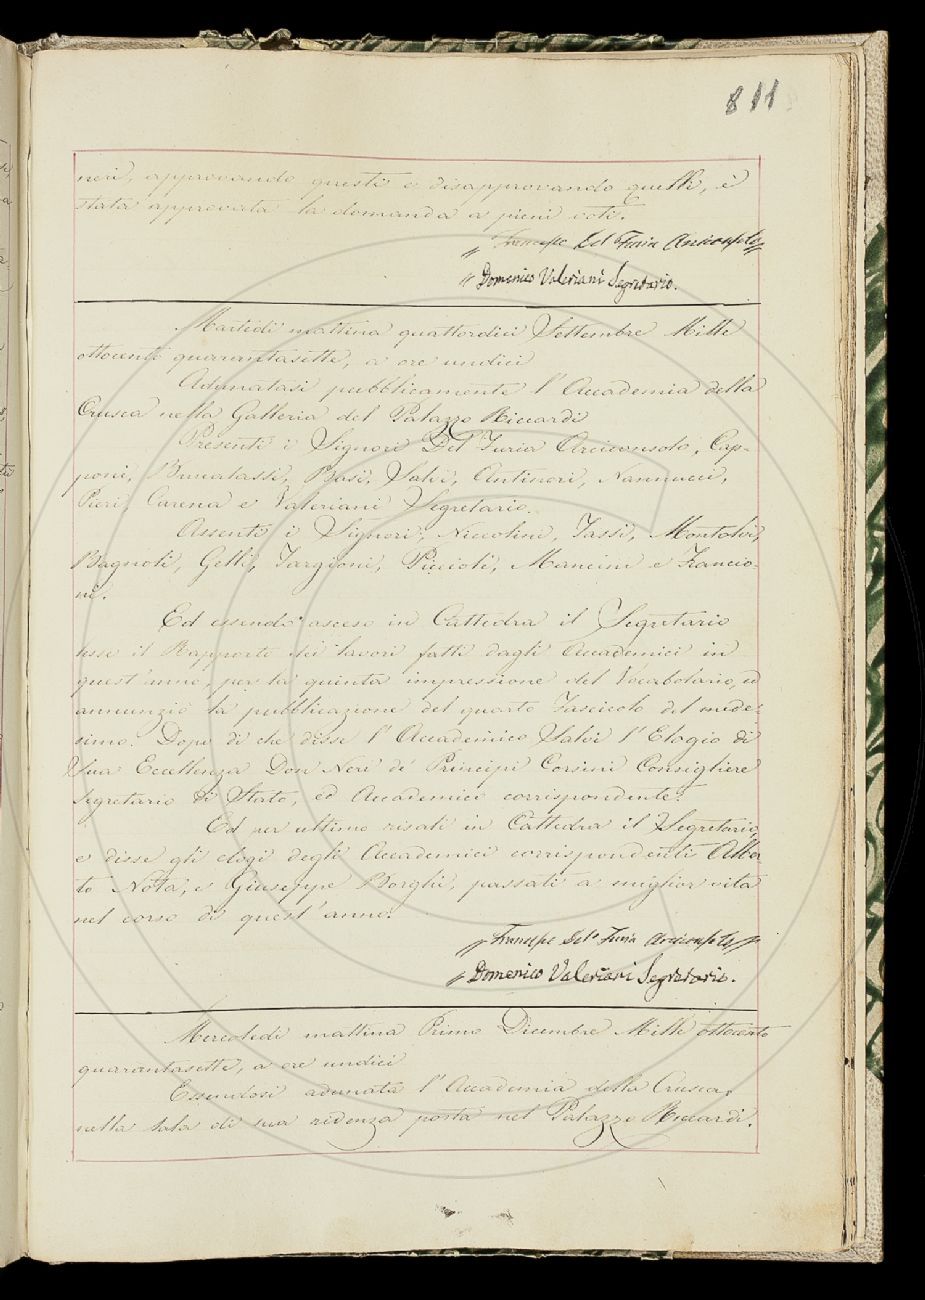 811
neri, approvando questi e disapprovando quelli, è
stata approvata la domanda a pieni voti.
Francesco Del Furia Arciconsolo
Domenico Valeriani Segretario.
Martedì mattina quattordici Settembre Mille
ottocento quarantasette, a ore undici
Adunatasi pubblicamente l'Accademia della
Crusca nella Galleria del Palazzo Riccardi
Presenti i Signori Del Furia Arciconsolo, Cap-
poni, Brucalassi, Basi, Salvi, Antinori, Nannucci,
Pieri, Carena e Valeriani Segretario.
Assenti i Signori, Niccolini, Tassi, Montalvi,
Bagnoli, Gelli, Targioni, Piccioli, Mancini e Francio-
ni.
Ed essendo asceso in Cattedra il Segretario
lesse il Rapporto dei lavori fatti dagli Accademici in
quest'anno, per la quinta impressione del Vocabolario, ed
annunziò la pubblicazione del quarto Fascicolo del mede-
simo. Dopo di che disse l'Accademico Salvi l'Elogio di
Sua Eccellenza Don Neri de' Principi Corsini Consigliere
Segretario di Stato, ed Accademico corrispondente.
Ed per ultimo risalì in Cattedra il Segretario,
e disse gli elogi degli Accademici corrispondenti Alber
to Nota, e Giuseppe Borghi, passati a miglior vita
nel corso di quest'anno.
Francesco Del Furia Arciconsolo
Domenico Valeriani Segretario.
Mercoledì mattina Primo Dicembre Mille ottocento
quarantasette, a ore undici
Essendosi adunata l'Accademia della Crusca,
nella sala di sua residenza posta nel Palazzo Riccardi.